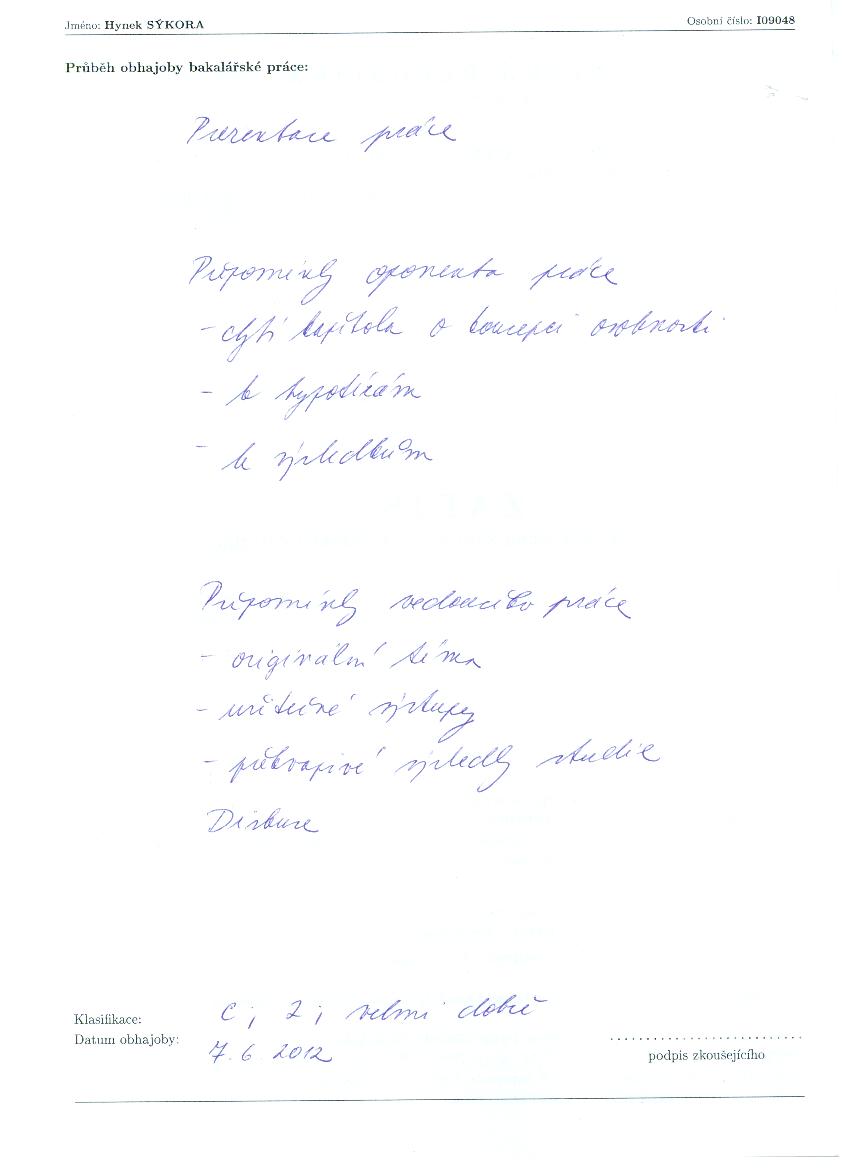 Jméno: Hynek SÝKORA
Osobní číslo: I09048
Průběh obhajoby bakalářské práce:
Prezentace práce
Připomínky oponenta práce
- chybí kapitola o koncepci osobnosti
- k hypotézám
- k výsledkům
Připomínky vedoucího práce
- originální téma
- užitečné výstupy
- překvapivé výsledky studie
Diskuse
Klasifikace: C ; 2 ; velmi dobře
Datum obhajoby: 7.6.2012
podpis zkoušejícího